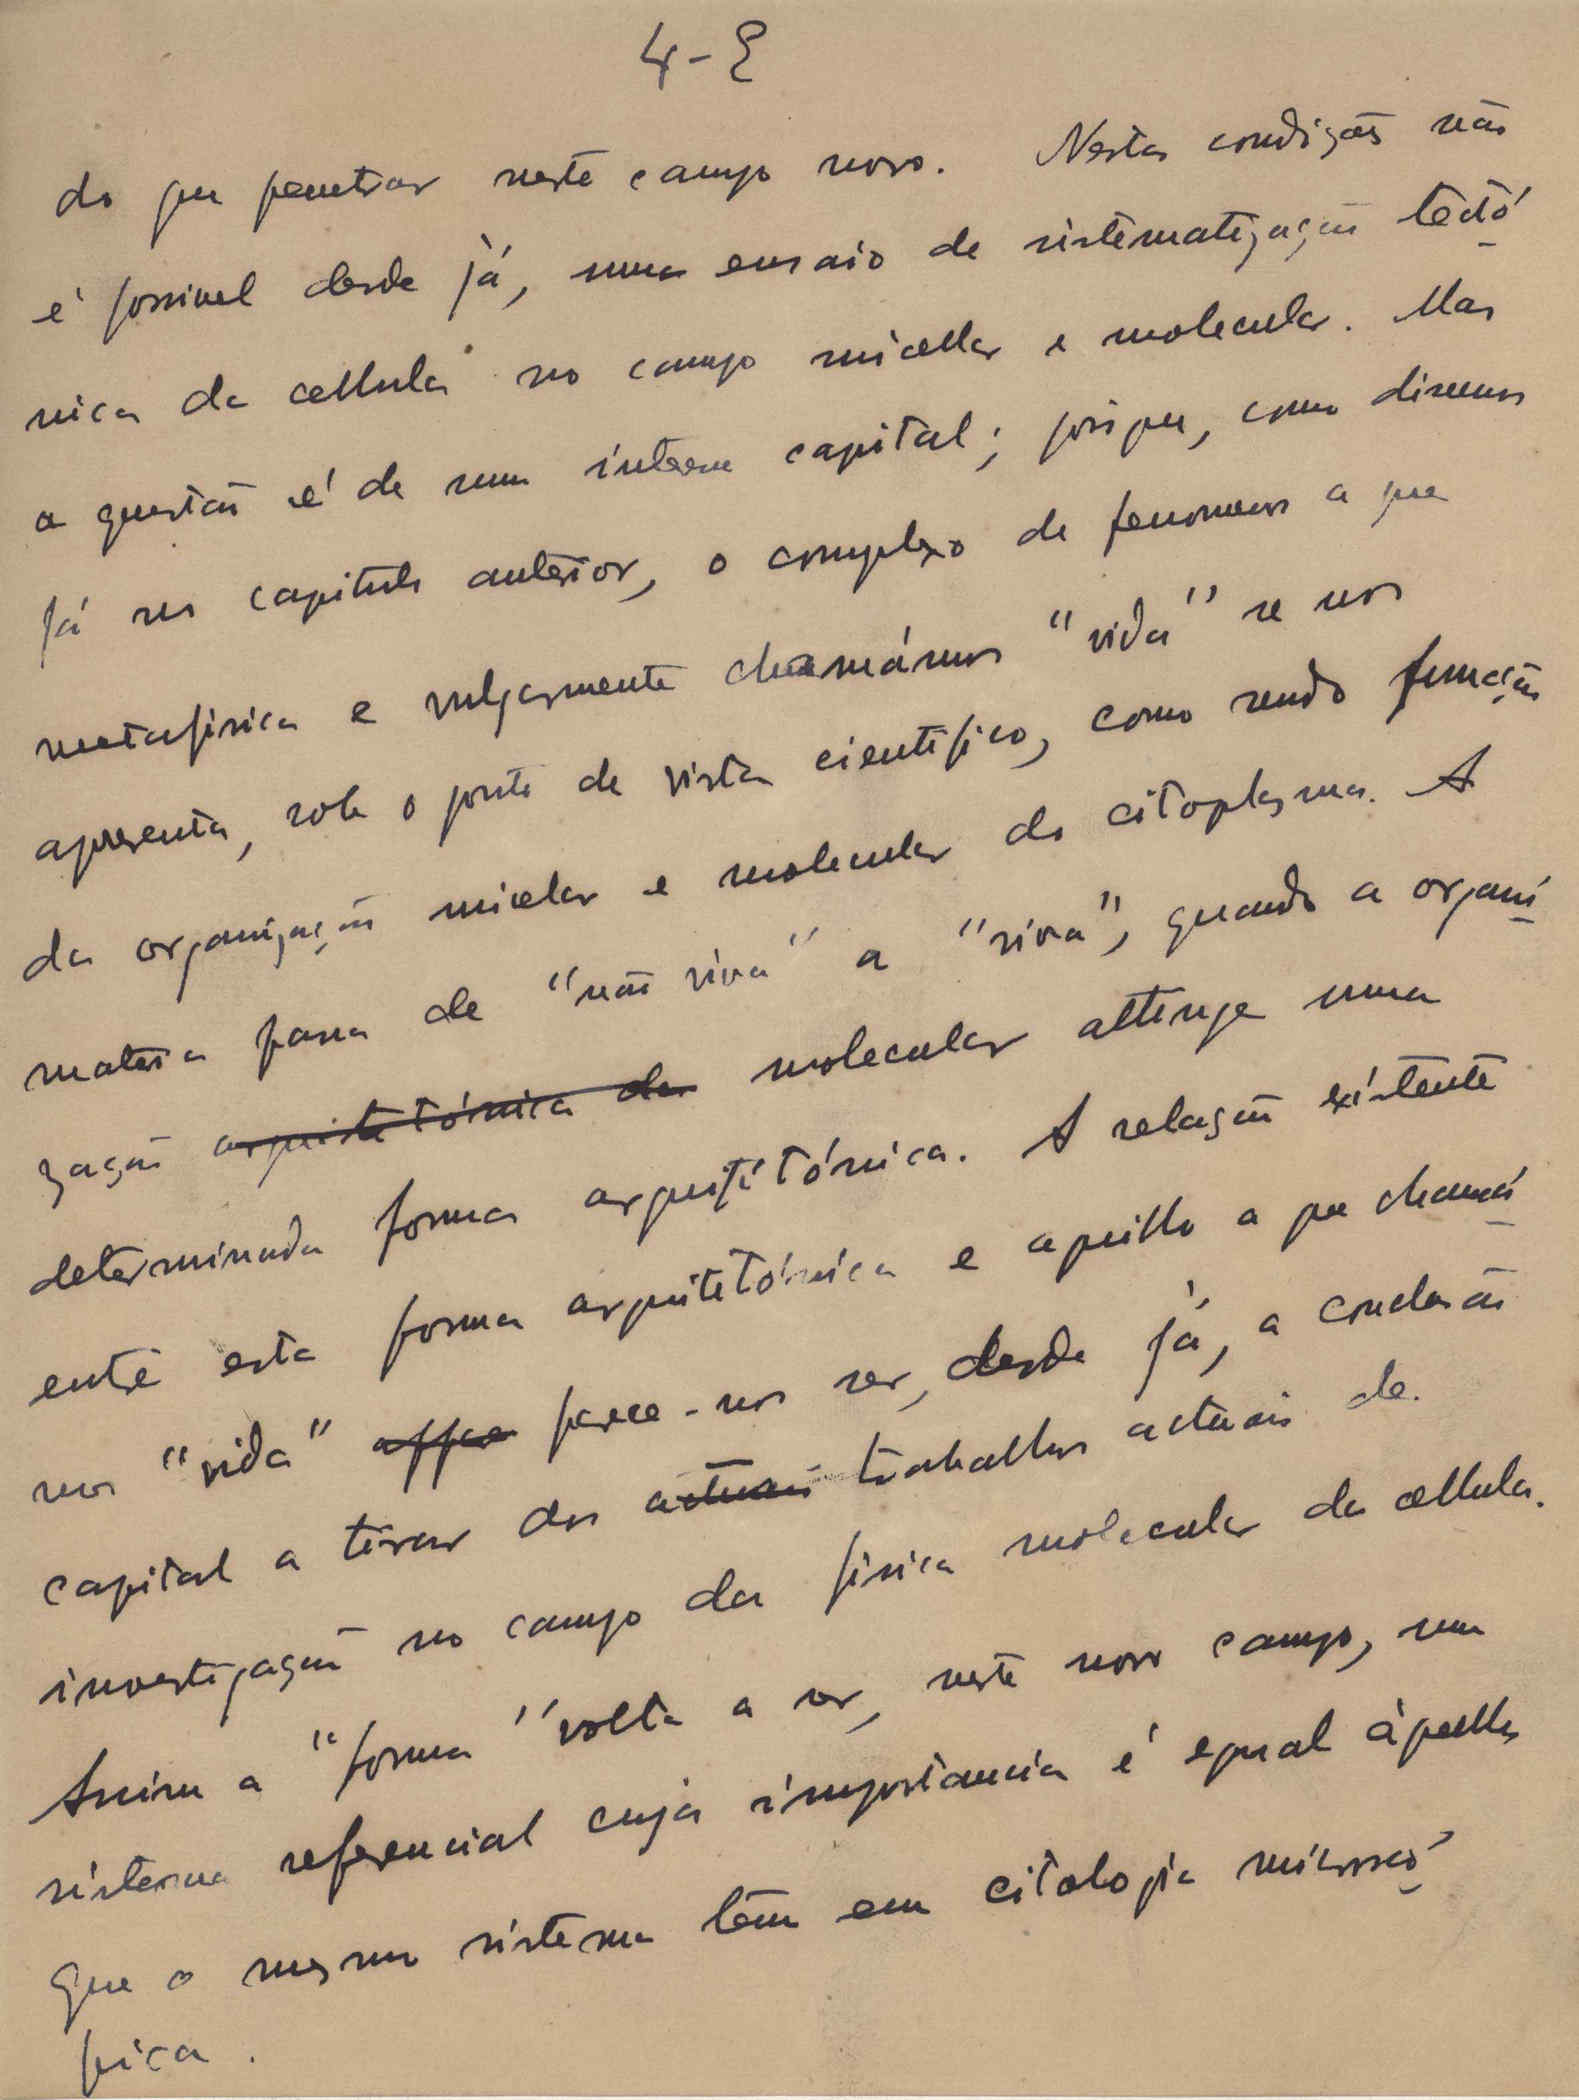 4-E
do que penetrar neste campo novo. Nestas condições não
é possivel desde já, um ensaio de sistematização tectó
nica da cellula no campo micellar e molecular. Mas
a questão é de um interesse capital; pois que, como dissemos
já no capitulo anterior, o complexo de fenomenos a que
metafisica e vulgarmente chamámos "vida" se nos
apresenta, sob o ponto de vista cientifico, como sendo função
da organização micelar e molecular do citoplasma. A
materia passa de "não viva" a "viva", quando a organi
zação arquitetónica da molecular attinge uma
determinada forma arquitetónica. A relação existente
entre esta forma arquitetónica e aquillo a que chamá
mos "vida" parece-nos ser, desde já, a conclusão
capital a tirar dos actuais trabalhos actuais de
investigação no campo da fisica molecular da cellula.
Assim a "forma" volta a ser, neste novo campo, um
sistema referencial cuja importancia é egual àquella
que o mesmo sistema têm em citologia microscó
pica.